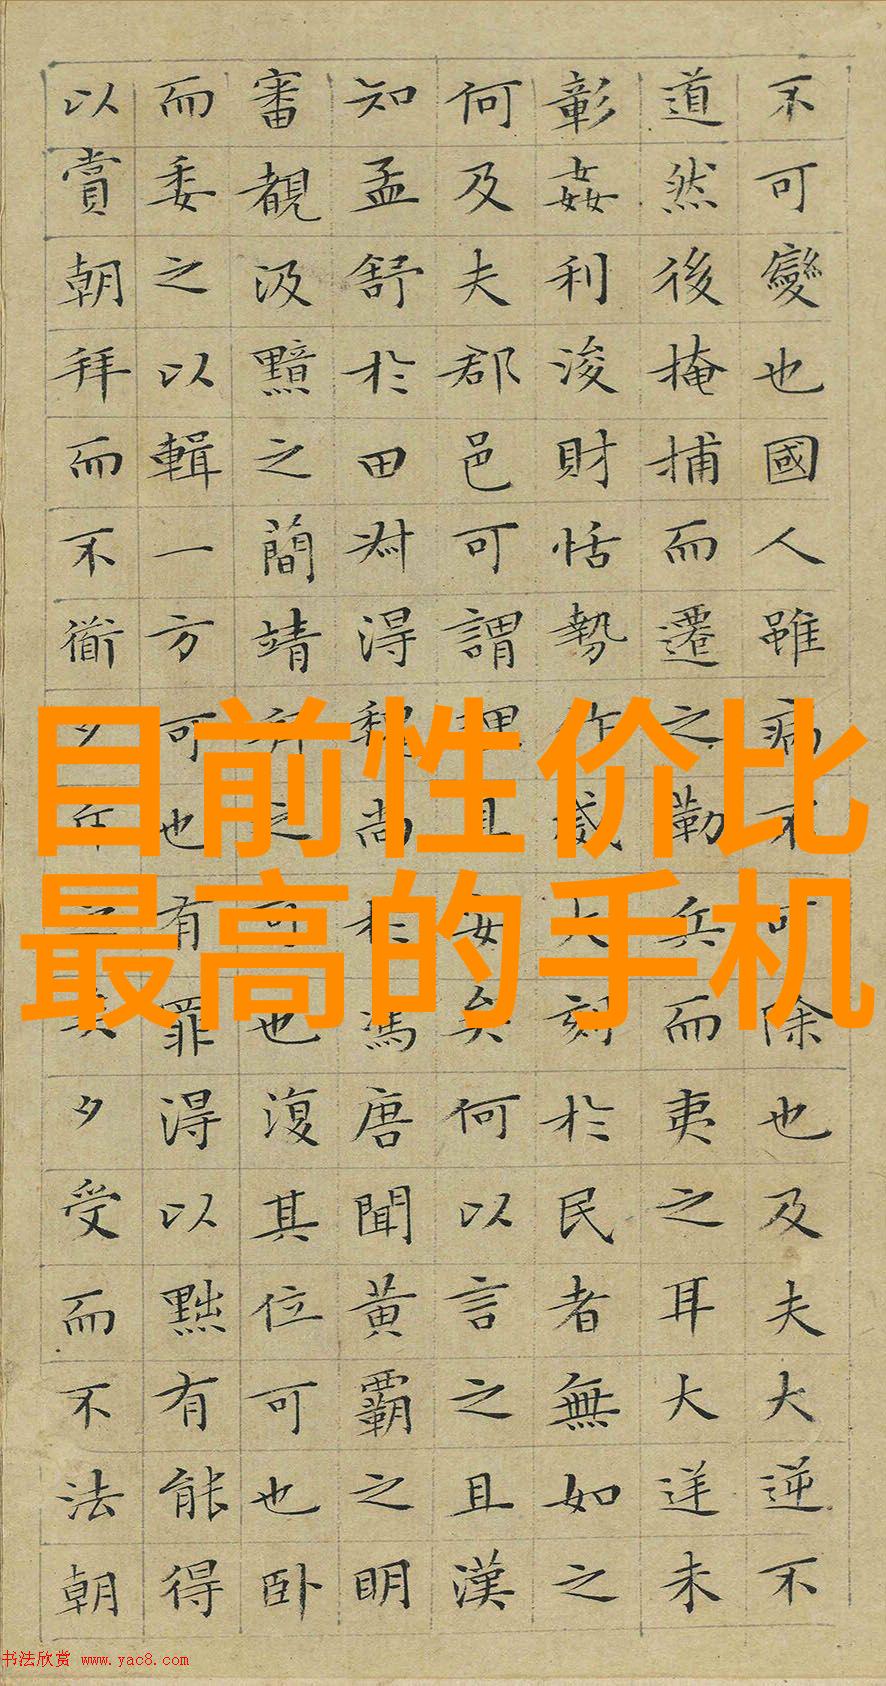 不可變也國人雖病不可除也及夫大逆不
道然後掩捕而遷之勒兵而夷之耳大逆未
彰姦利浚財恬勢作威大刻於民者無如之
何及夫郡邑可謂理且安矣何以言之且漢
知孟舒於田叔得魏尚於馮唐聞黃霸之明
審覩汲黯之簡靖拜之可也復其位可也臥
而委之以輯一方可也有罪得以黜有能得
以賞朝拜而不衜夕斥之矣夕受而不法朝
目前性价比
最高的手机
书法欣赏 www.yac8.com